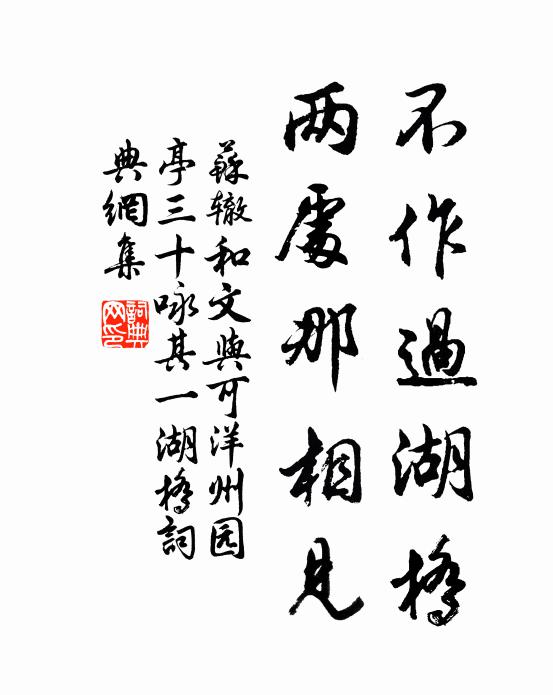 不作過湖橋
两處那相見
蘇辙和文與可洋州园
亭三十咏其一湖橋詞
典網集
詞典
网印